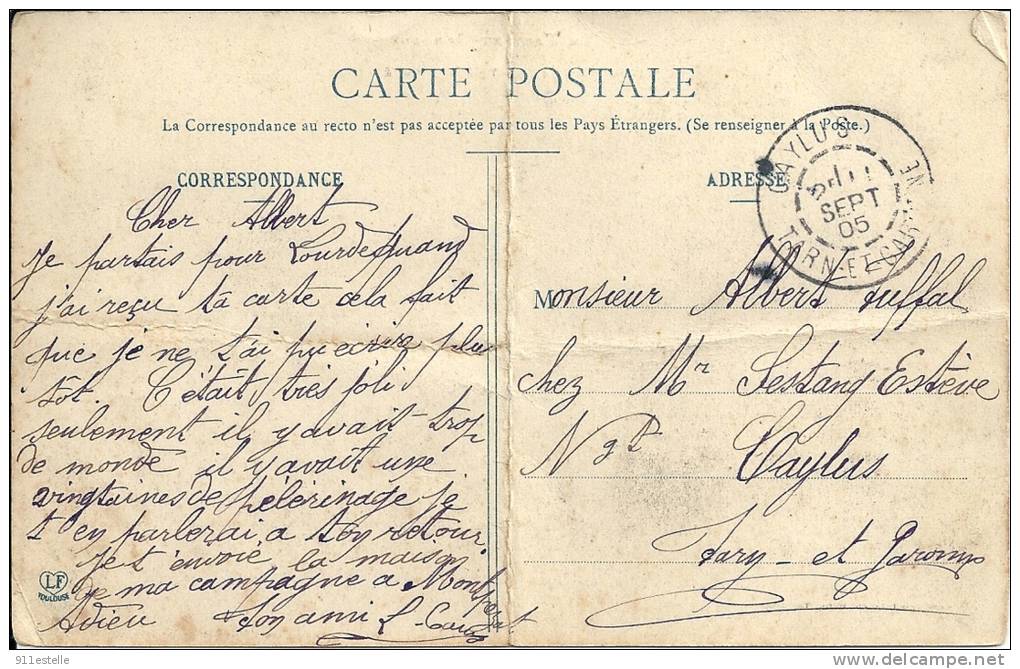 CARTE POSTALE
La Correspondance au recto n'est pas acceptée par tous les Pays Étrangers. (Se renseigner à la Poste.)
CORRESPONDANCE
Cher Albert
Je partais pour Lourdes quand
j'ai reçu ta carte cela fait
que je ne t'ai pu ecrire plu
tôt. C'était très joli
seulement il y avait trop
de monde il y avait une
vingtaines de pélérinage je
t'en parlerai a ton retour.
Je t'envoie la maison
de ma campagne a
Adieu Ton ami L.
LF
TOULOUSE
ADRESSE
CAYLUS
SEPT
05
TARN-ET-GARONNE
Monsieur Albert
chez Mr Lestang Estève
Ngt Caylus
Tarn et Garonne
911estelle
http://www.delcampe.net